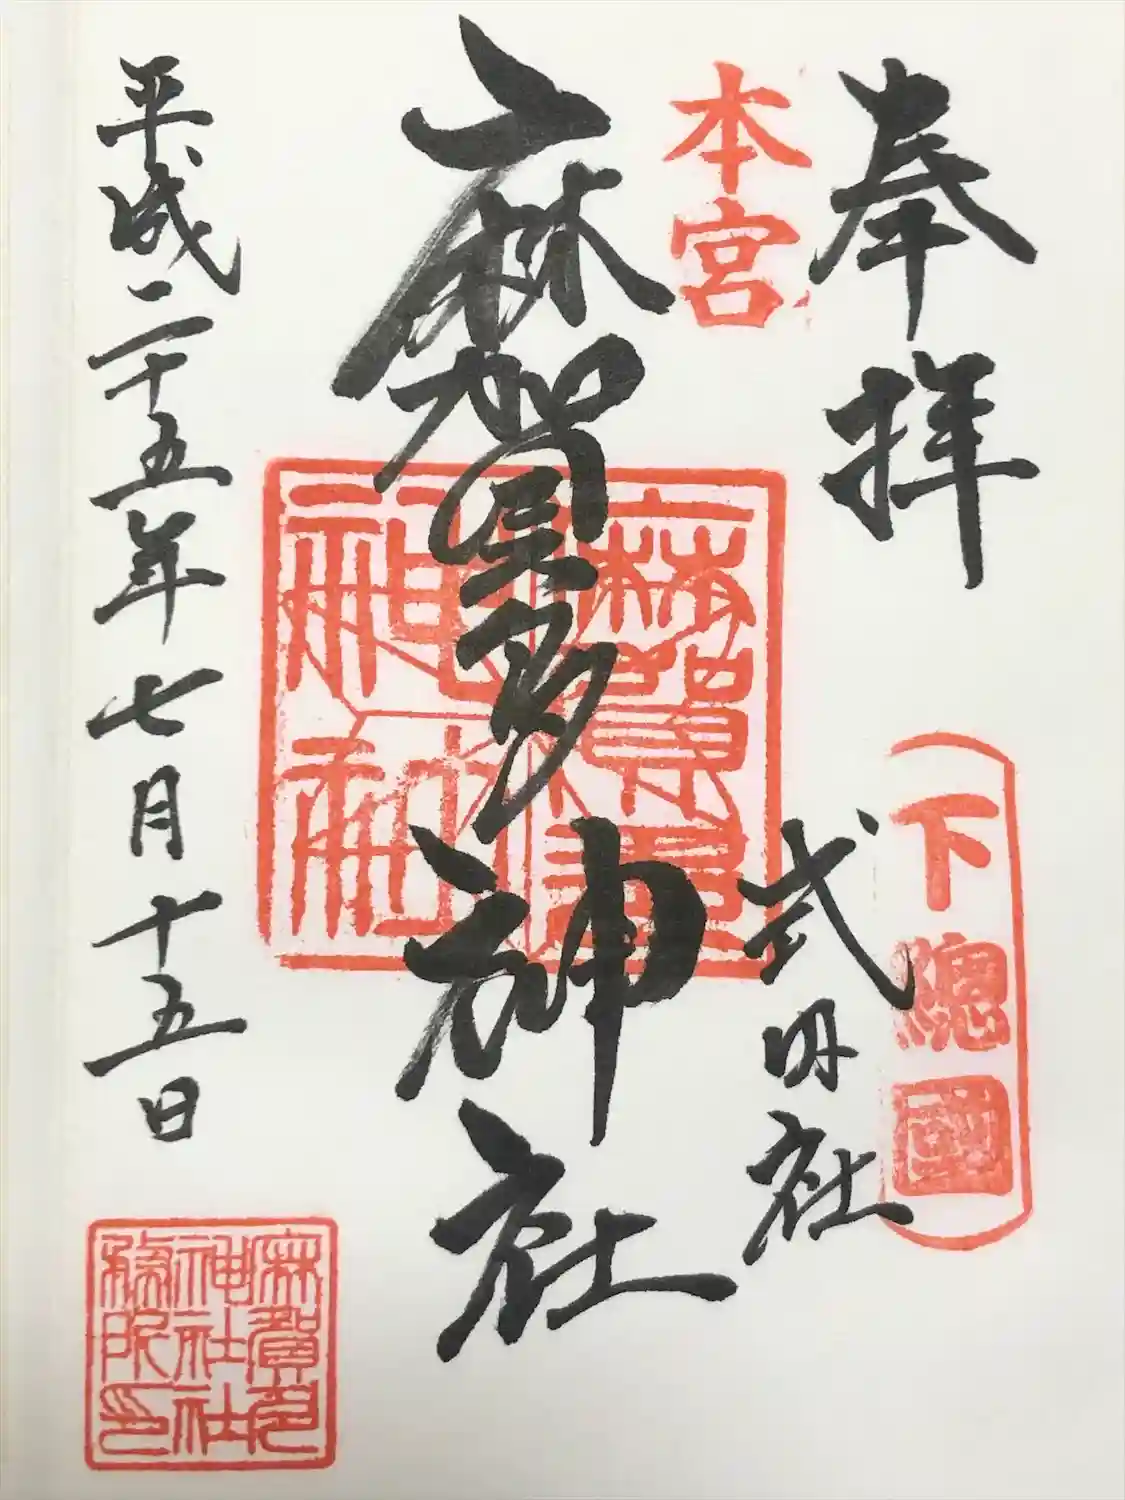 奉拝
下總國
式内社
本宮
麻賀多神社
麻賀多神社
平成二十五年七月十五日
麻賀多
神社社
務所印